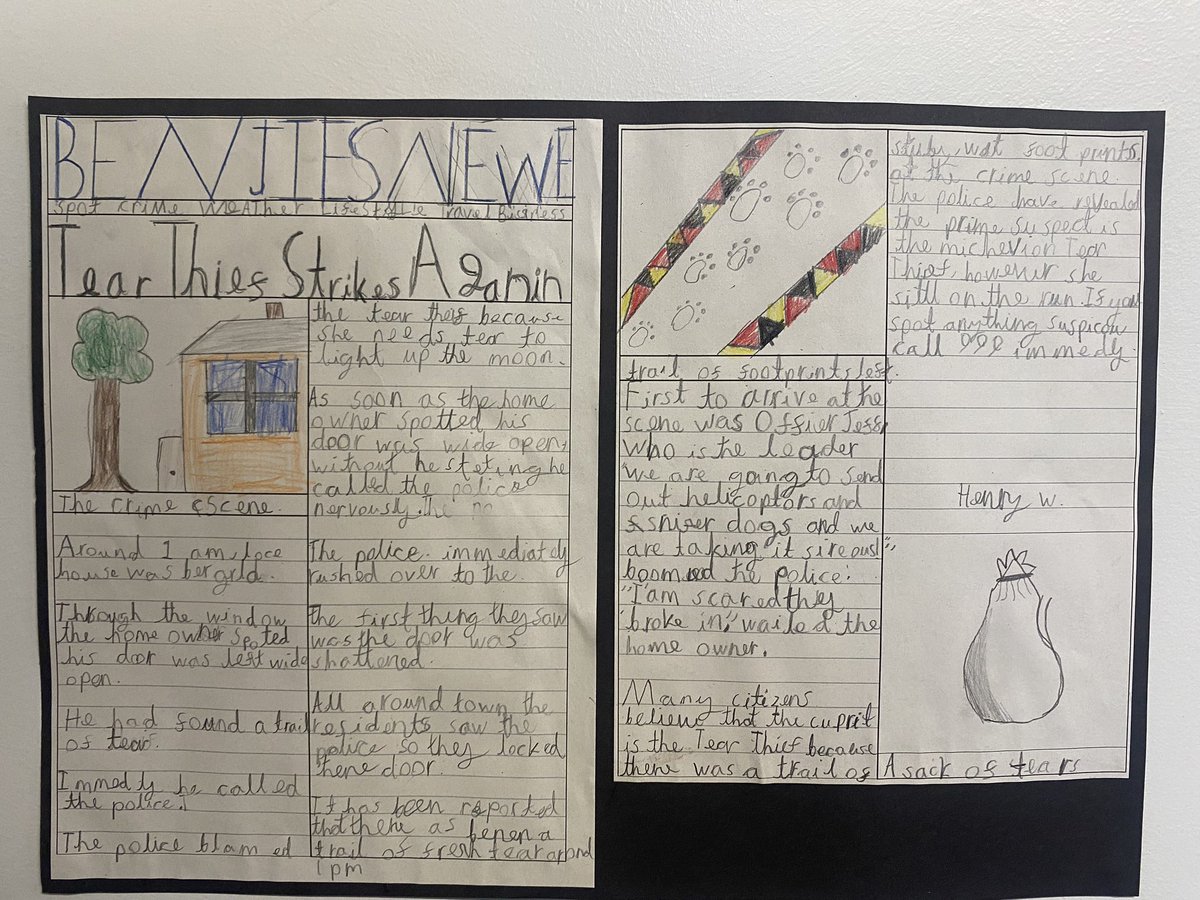 BENJIES NEWE
Spot crime WEATHER Lifestolle Travel Business
Tear Thief Strikes Again
The crime Scene.
Around 1 am, loce
house was bergrld.
Through the window
the home owner spoted
his door was left wide
open.
He had found a trail
of tear.
Immedy he called
the police.
The police blam ed
the tear thef because
she needs tear to
light up the moon.
As soon as the home
owner spotted his
door was wide open,
without he steting he
called the police
nervously. The no
The police. immediately
rushed over to the.
the first thing they saw
was the door was
shattened.
All around town the
residents saw the
police so they locked
there door.
It has been reported
that there as benen a
trail of fresh tear arond
1 pm
trail of footprints left.
First to arrive at the
scene was Offier Jess
Who is the leader
"we are going to send
out helicoptors and
sniffer dogs and we
are taking it sireousl",
boomed the police.
"I am scared they
broke in," wailed the
home owner.
Many citizens
believe that the cuprit
is the Tear Thief because
there was a trail of
stuby, wet foot prints.
at the crime scene.
The police have revealed
the prime suspect is
the michevion Tear
Thief, however she
sitll on the run. If you
spot anything suspicon
call 999 immedy.
Henry w.
A sack of tears